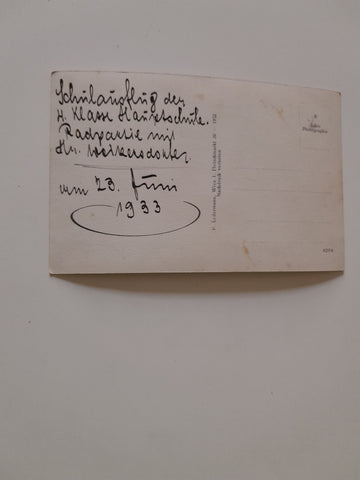 Schulausflug der
4. Klasse Hauptschule.
Radpartie mit
Hr. Weikersdorfer
vom 23. Juni
1933
P. Ledermann, Wien I., Fleischmarkt 20 - 1932
Nachdruck verboten
Echte
Photographie